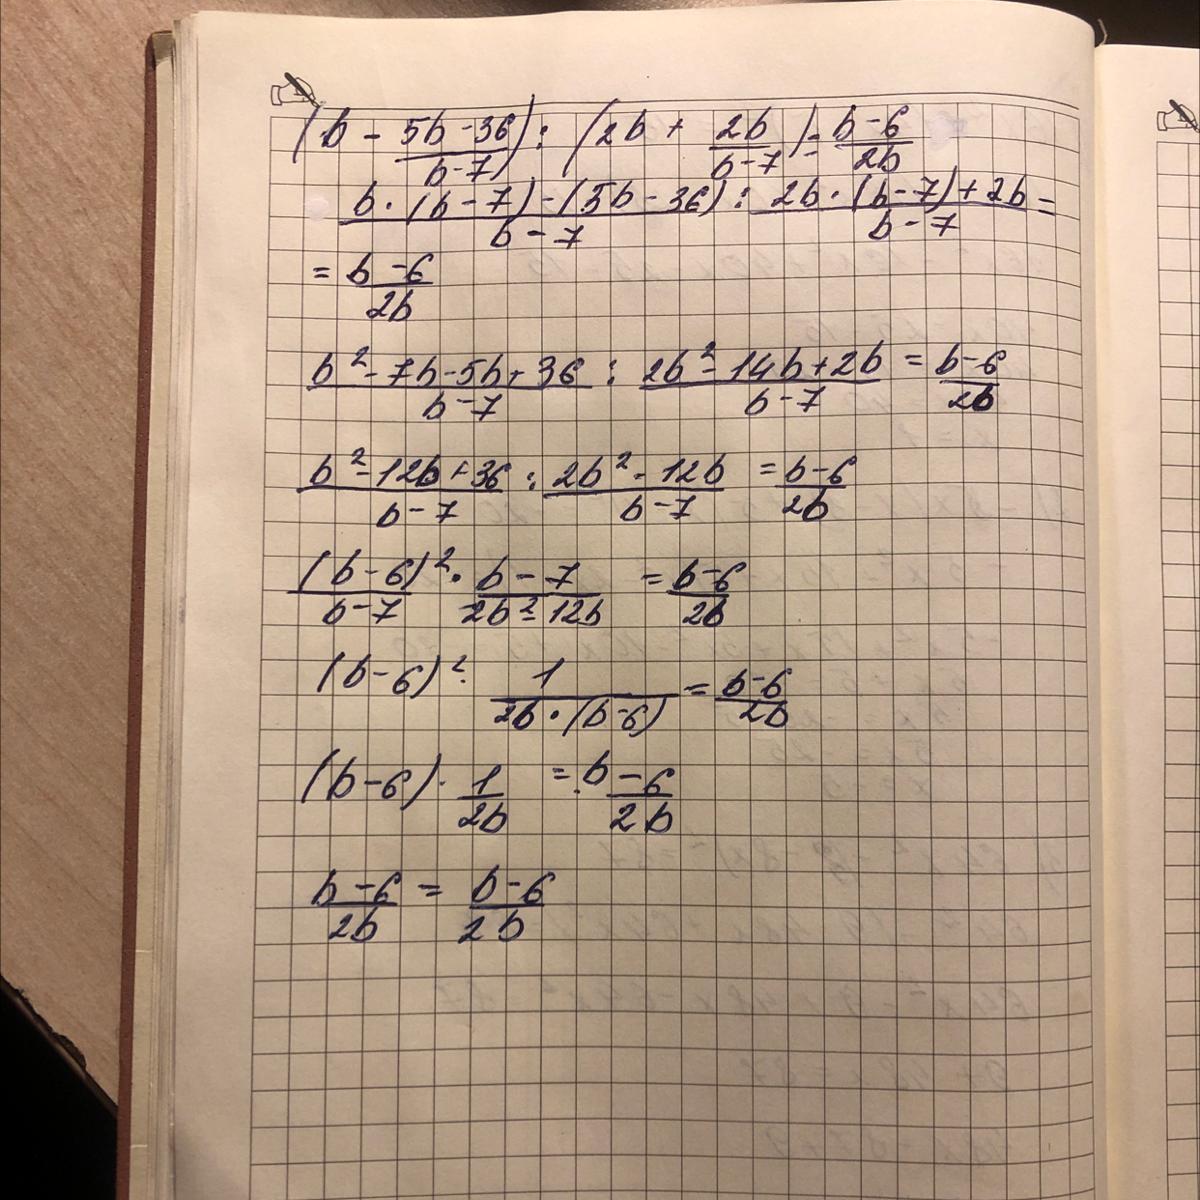 (b - (5b-36)/(b-7)) : (2b + 2b/(b-7)) = (b-6)/2b
(b·(b-7)-(5b-36))/(b-7) : (2b·(b-7)+2b)/(b-7) =
= (b-6)/2b
(b²-7b-5b+36)/(b-7) : (2b²-14b+2b)/(b-7) = (b-6)/2b
(b²-12b+36)/(b-7) : (2b²-12b)/(b-7) = (b-6)/2b
(b-6)²/(b-7) · (b-7)/(2b²-12b) = (b-6)/2b
(b-6)² · 1/(2b·(b-6)) = (b-6)/2b
(b-6) · 1/2b = (b-6)/2b
(b-6)/2b = (b-6)/2b